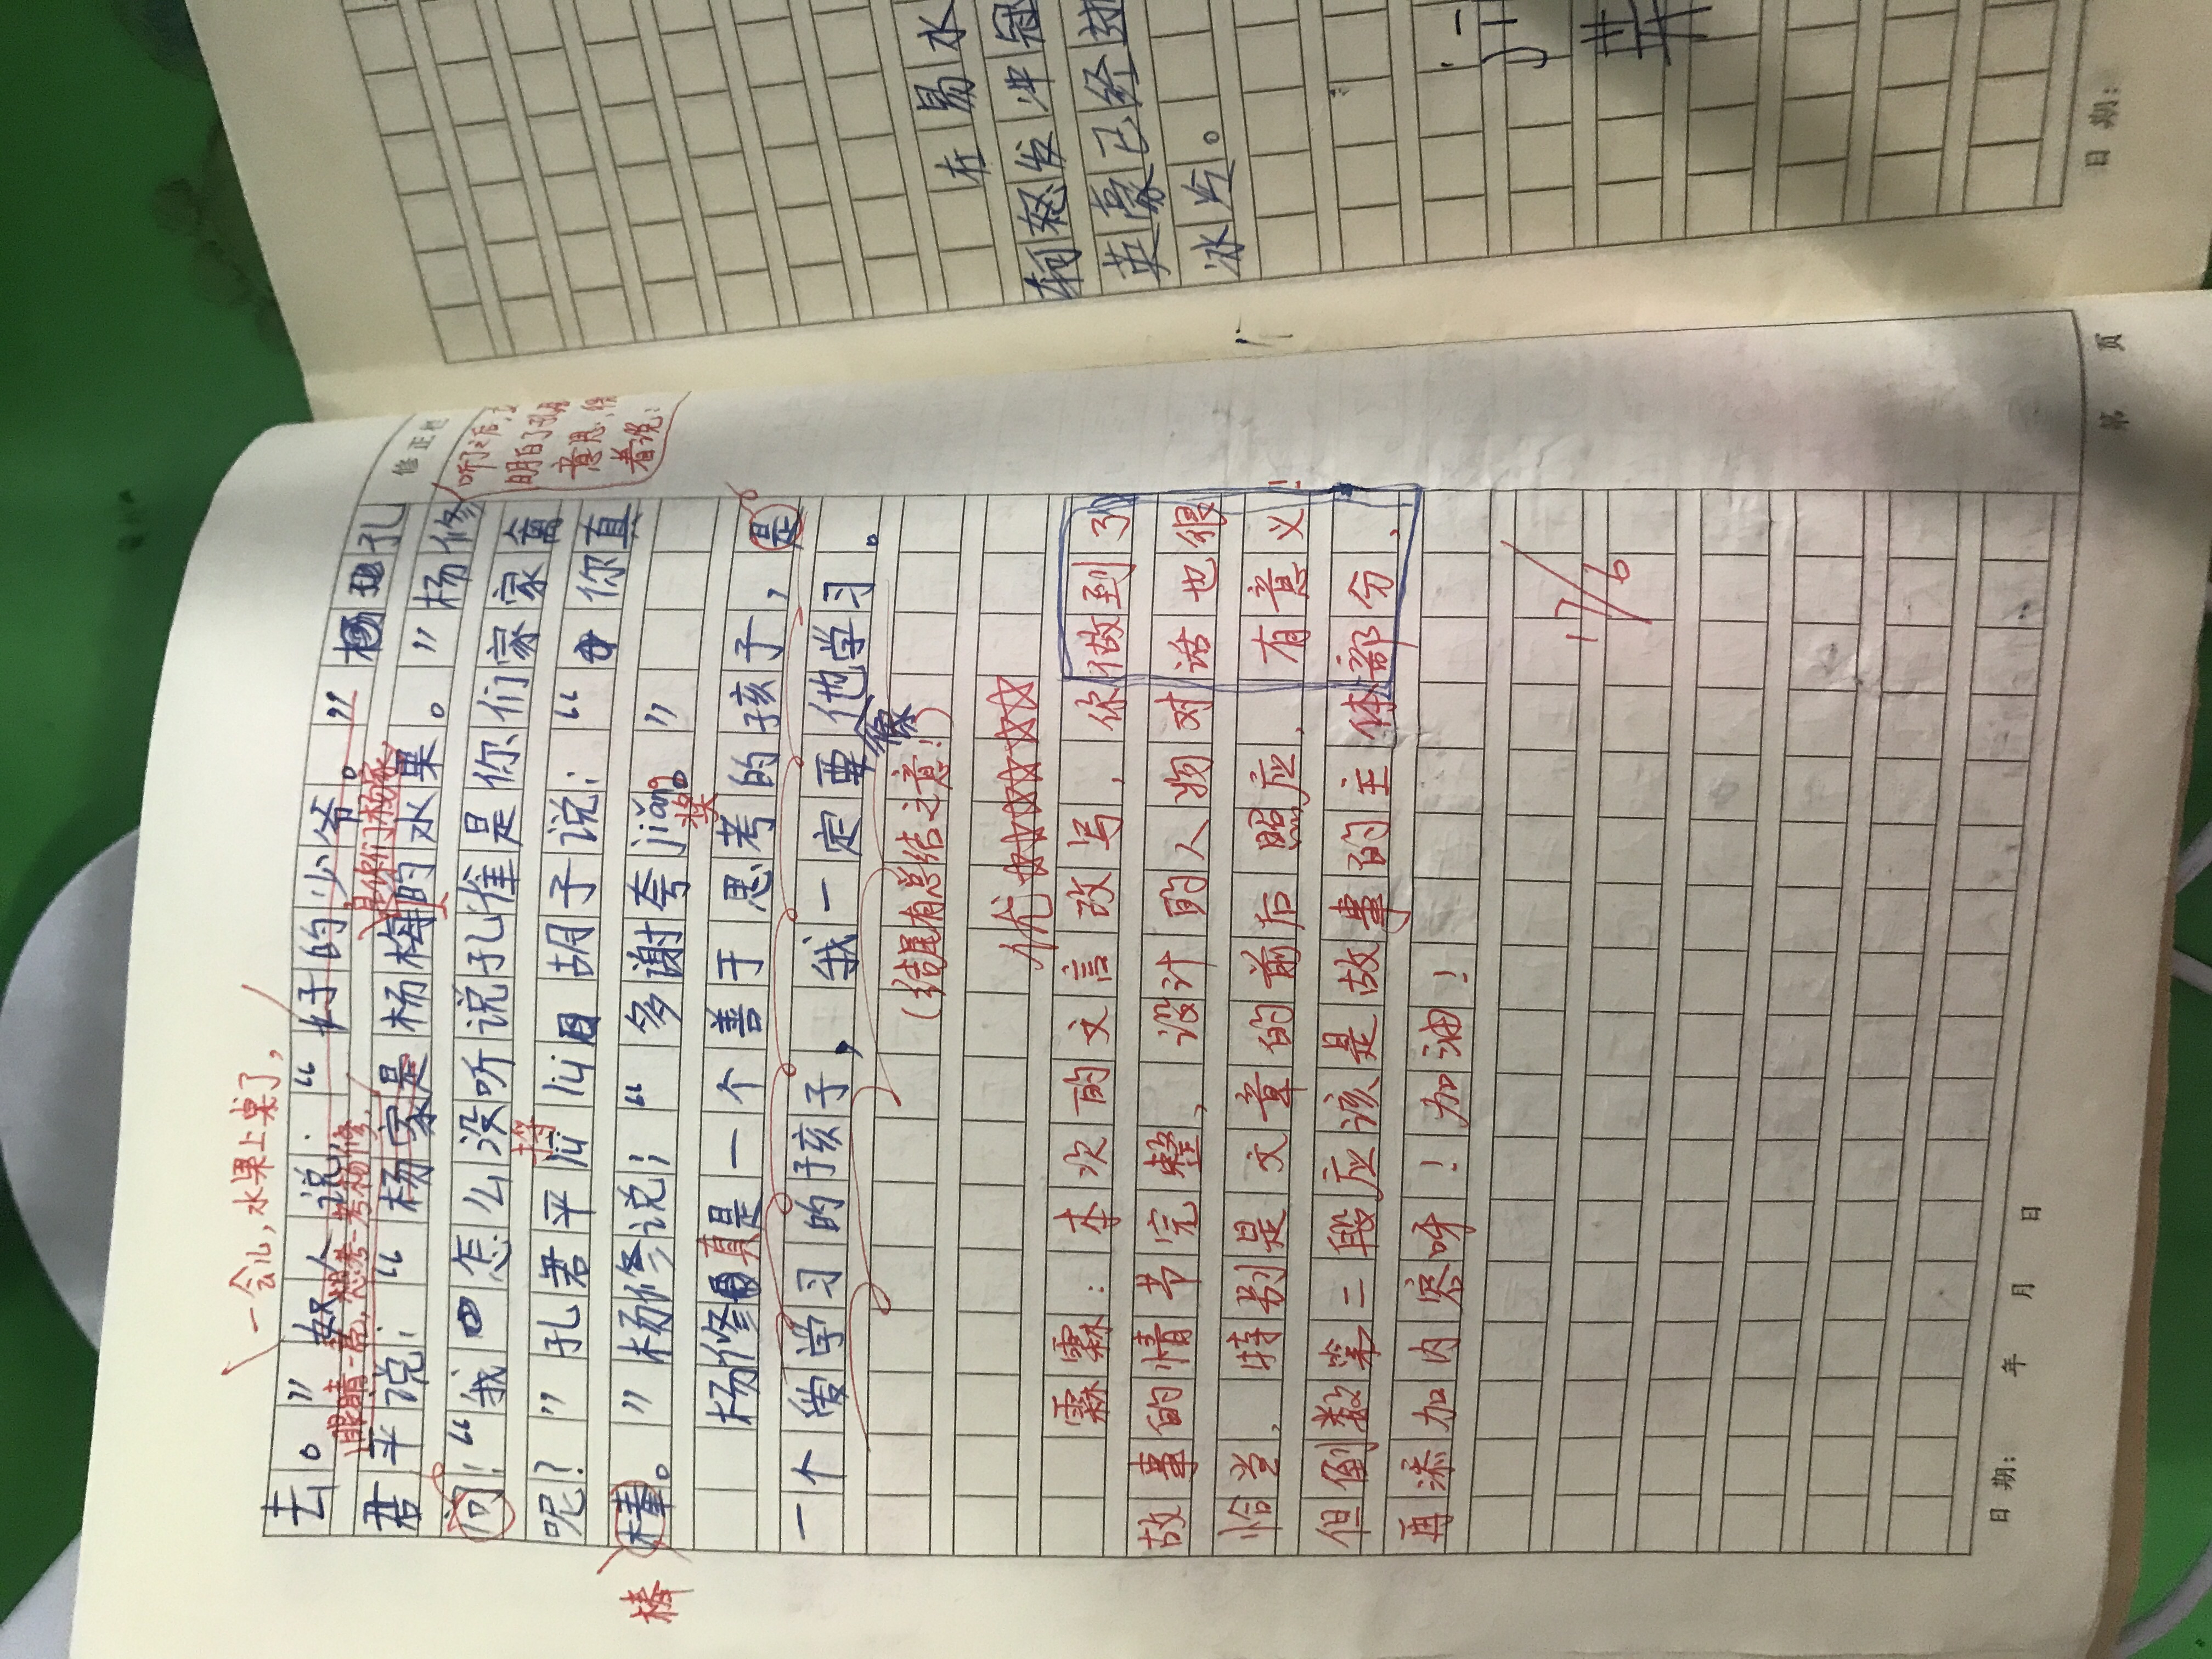 一会儿，水果上桌了，
去。”奴人说：“好的少爷。”杨 孔
眼睛一亮，想考一考杨修，
是你们杨家
君平说：“杨家是杨梅的水果。”杨修
问：“我 怎么没听说孔雀是你们家家禽
捋
呢？”孔君平lǚ lǚ 胡子说：“ 你真
棒。”杨修说：“多谢夸jiǎng。”
棒
奖
杨修 真是一个善于思考的孩子，是
一个爱学习的孩子，我一定要像他学习。
（结尾有总结之意！）
优☆☆☆☆☆
霖霖：本次的文言改写，你做到了
故事的情节完整，设计的人物对话也很
恰当，特别是文章的前后照应，有意义！
但倒数第三段应该是故事的主体部份，
再添加内容呀！加油！
17/6
修正栏
听了之后，
明白了孔君
意思，
着说：
日期： 年 月 日
第 页
在易水
轲怒发冲冠
英豪已经
冰冷。
日期：